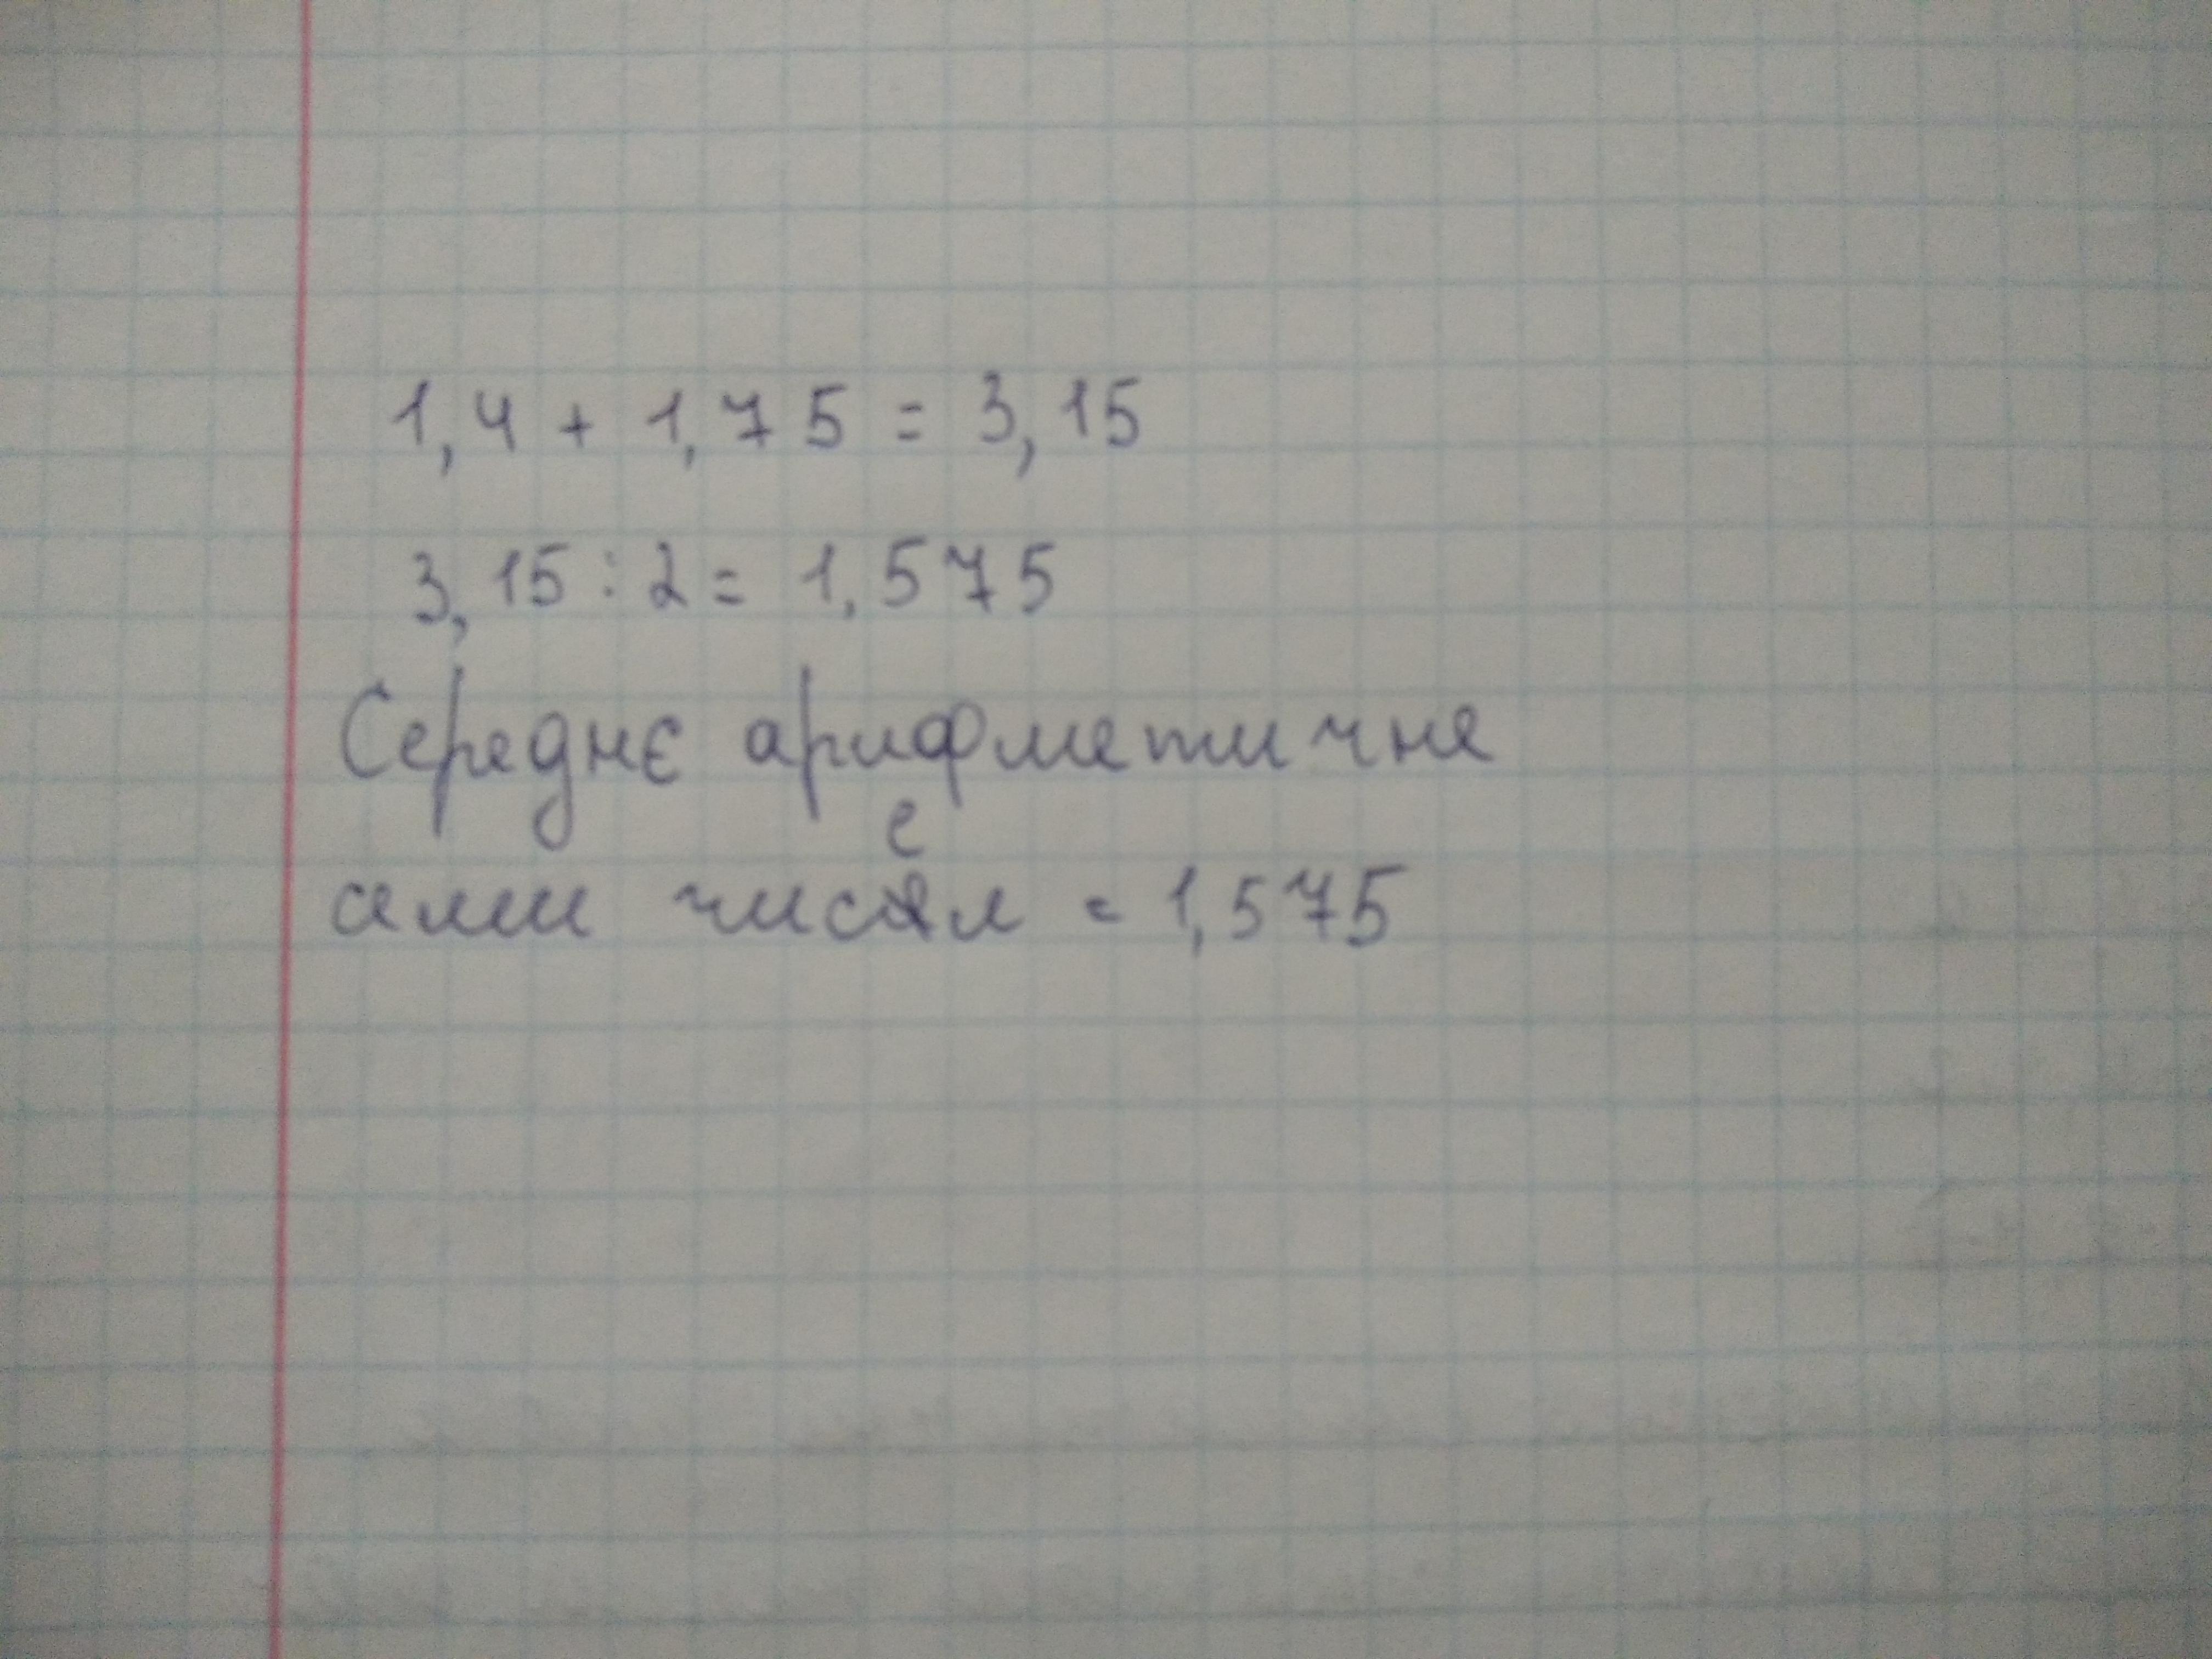 1,4 + 1,75 = 3,15
3,15 : 2 = 1,575
Середнє арифметичне
чисел = 1,575